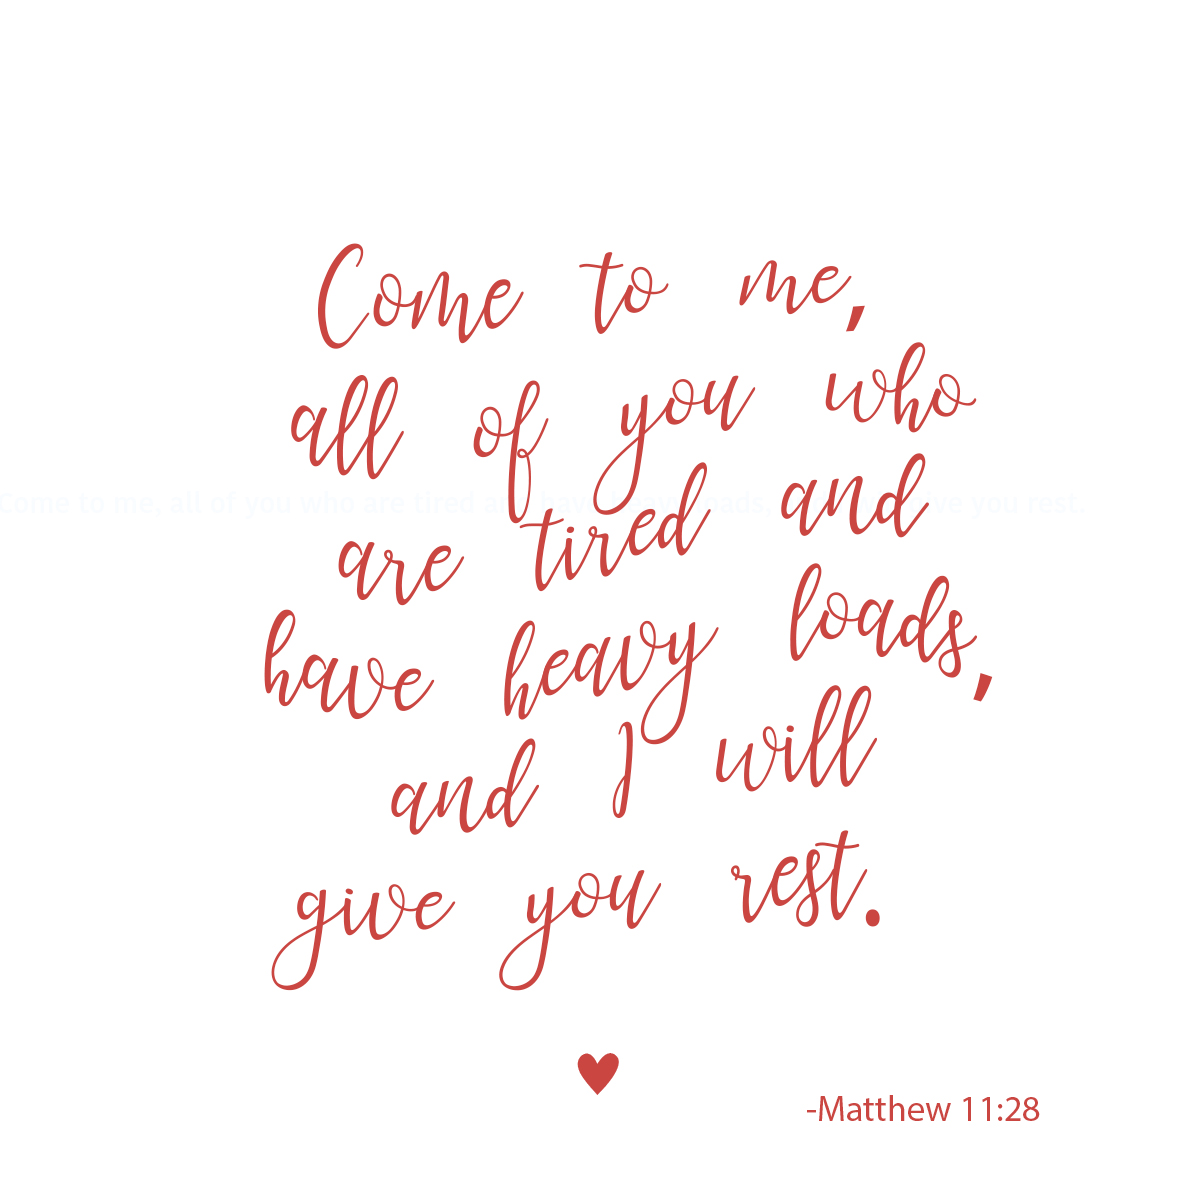 Come to me,
all of you who
are tired and
have heavy loads,
and I will
give you rest.
-Matthew 11:28
Come to me, all of you who are tired and have heavy loads, and I will give you rest.